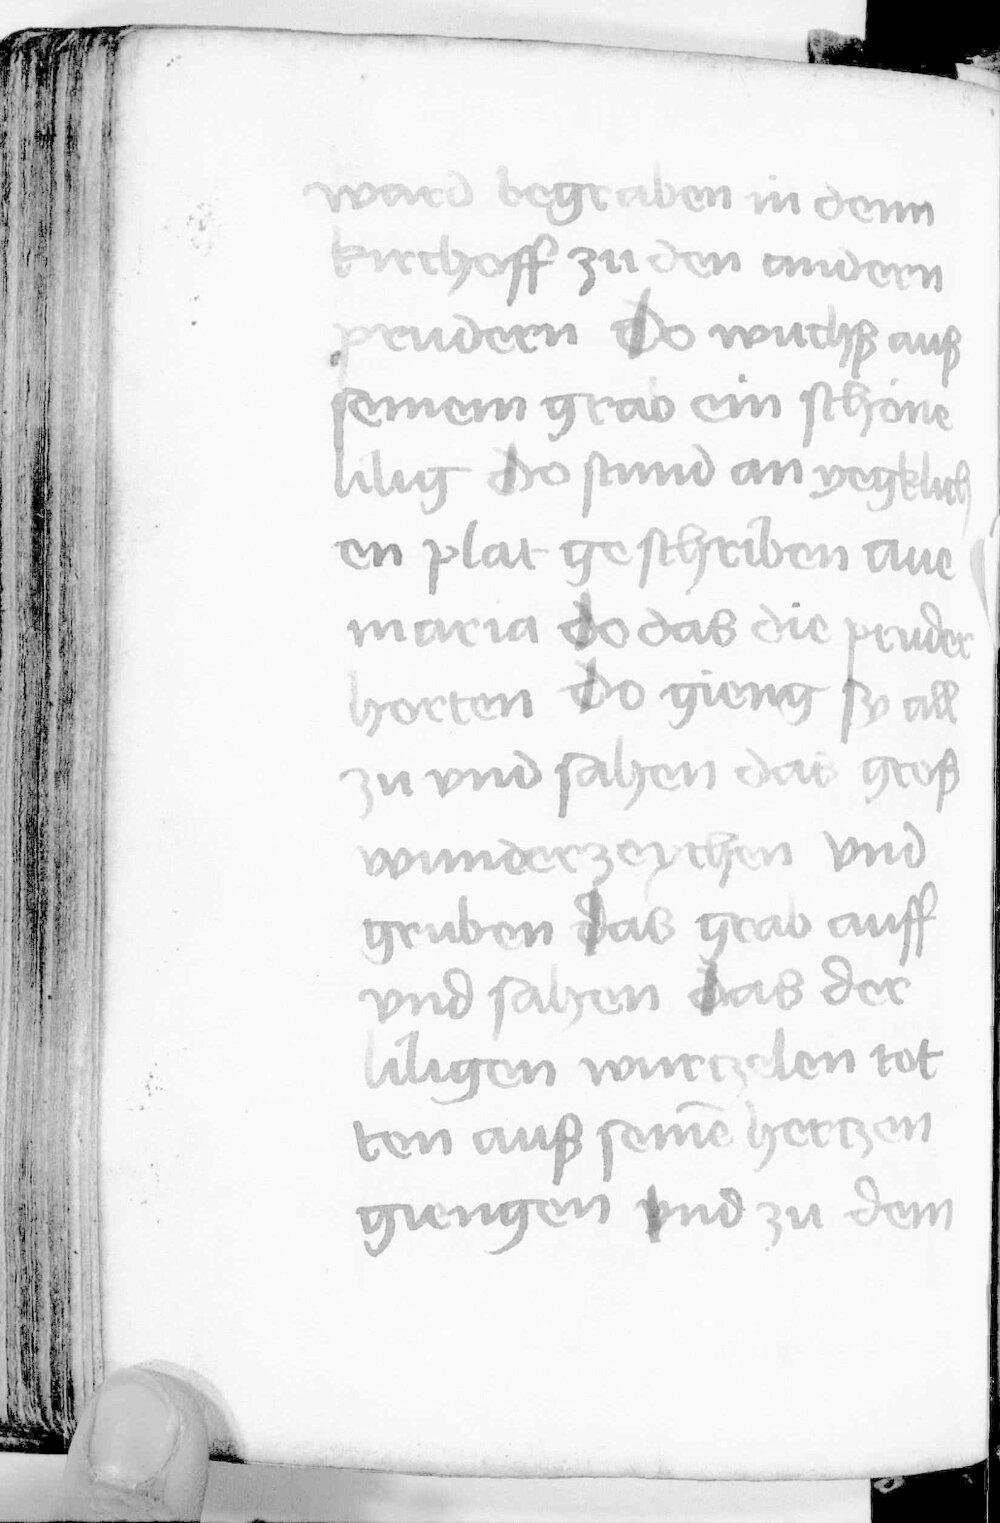 ward begraben in denn
kirchoff zu den andern
prudern Do wuchß auß
seinem grab ein schöne
lilig do stund an yegklich
en plat geschriben aue
maria do das die pruder
horten Do gieng sy all
zu vnd sahen das groß
wunderzeychen vnd
gruben das grab auff
vnd sahen das der
liligen wurtzelen tot
ten auß seinē hertzen
giengen vnd zu dem